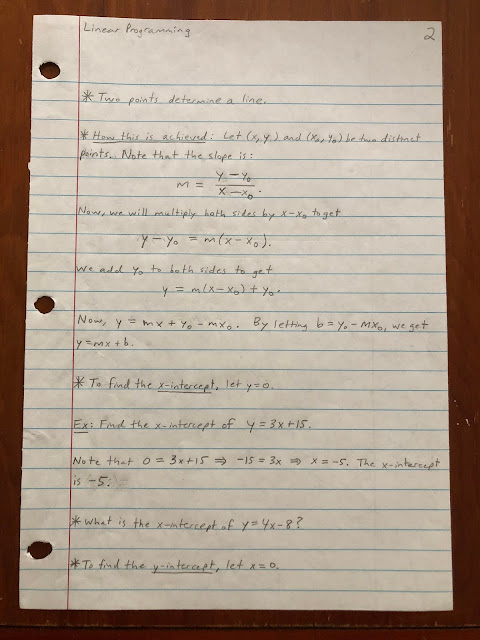 Linear Programming
2
* Two points determine a line.
* How this is achieved: Let (x, y) and (x₀, y₀) be two distinct
points. Note that the slope is:
m = (y - y₀)/(x - x₀).
Now, we will multiply both sides by x-x₀ to get
y - y₀ = m(x-x₀).
We add y₀ to both sides to get
y = m(x-x₀) + y₀.
Now, y = mx + y₀ - mx₀. By letting b = y₀ - mx₀, we get
y=mx+b.
* To find the x-intercept, let y=0.
Ex: Find the x-intercept of y = 3x+15.
Note that 0 = 3x+15 ⇒ -15 = 3x ⇒ x = -5. The x-intercept
is -5.
* What is the x-intercept of y=4x-8?
* To find the y-intercept, let x=0.